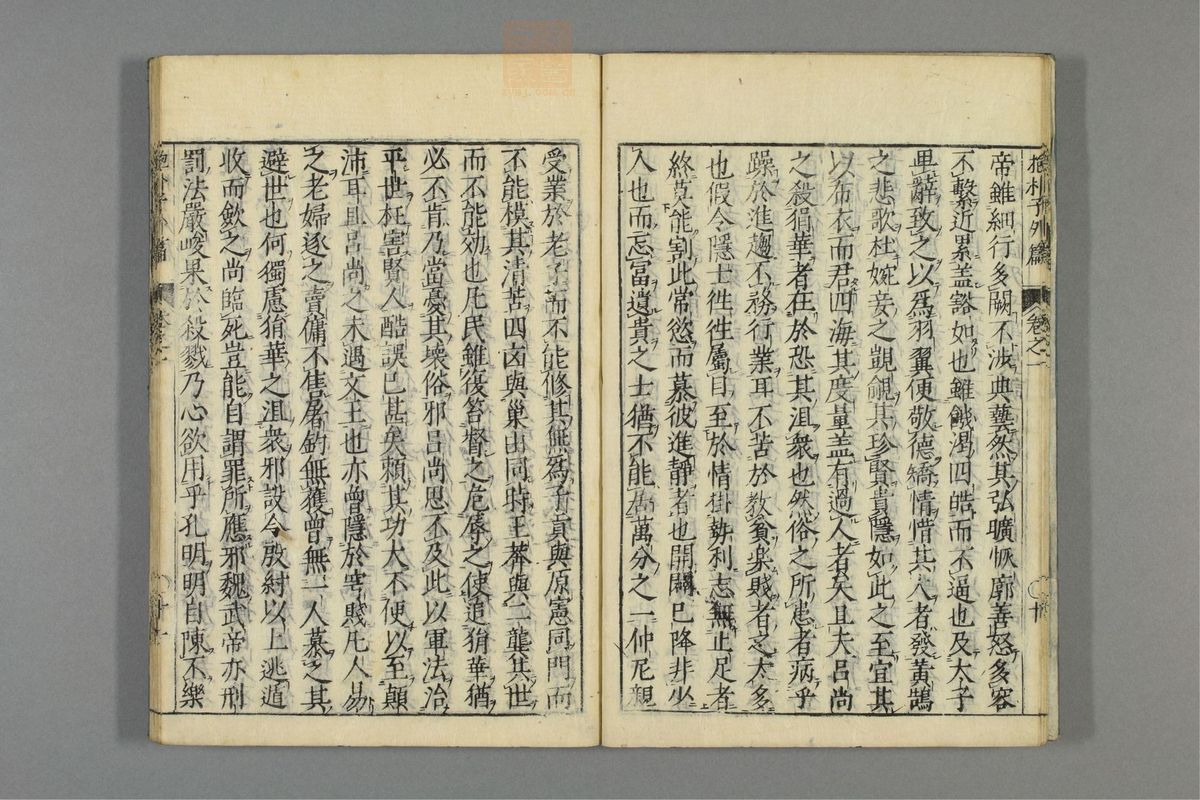 抱朴子外篇 卷之一 ○十
帝雖細行多闕不涉典藝然其弘曠恢廓善恕多容
不繫近累盖豁如也雖饑渴四皓而不逼也及太子
卑辭致之以爲羽翼便敬德矯情惜其大者發黃鵠
之悲歌杜婉妾之覬覦其珍賢貴隱如此之至宜其
以布衣而君四海其度量盖有過人者矣且夫呂尚
之殺狷華者在於恐其沮衆也然俗之所患者病乎
躁於進趨不務行業耳不苦於敎貧樂賤者之太多
也假令隱士徃徃屬目至於情掛勢利志無止足者
終莫能割此常慾而慕彼進靜者也開闢已降非少
人也而忘富遺貴之士猶不能居萬分之一仲尼親
受業於老子而不能修其無爲子貢與原憲同門而
不能模其清苦四凶與巢由同時王莽與二龔其世
而不能効也凡民雖復笞督之危辱之使追狷華猶
必不肯乃當憂其壊俗邪呂尚思不及此以軍法治
平世枉害賢人酷誤已甚矣賴其功大不便以至顚
沛耳且呂尚之未遇文王也亦曾隱於窮賤凡人易
之老婦逐之賣傭不售屠釣無獲曾無一人慕之其
避世也何獨慮狷華之沮衆邪設令殷紂以上逃遁
收而歛之尚臨死豈能自謂罪所應邪魏武帝亦刑
罰法嚴峻果於殺戮乃心欲用乎孔明明自陳不樂
抱朴子外篇 卷之一 ○十一